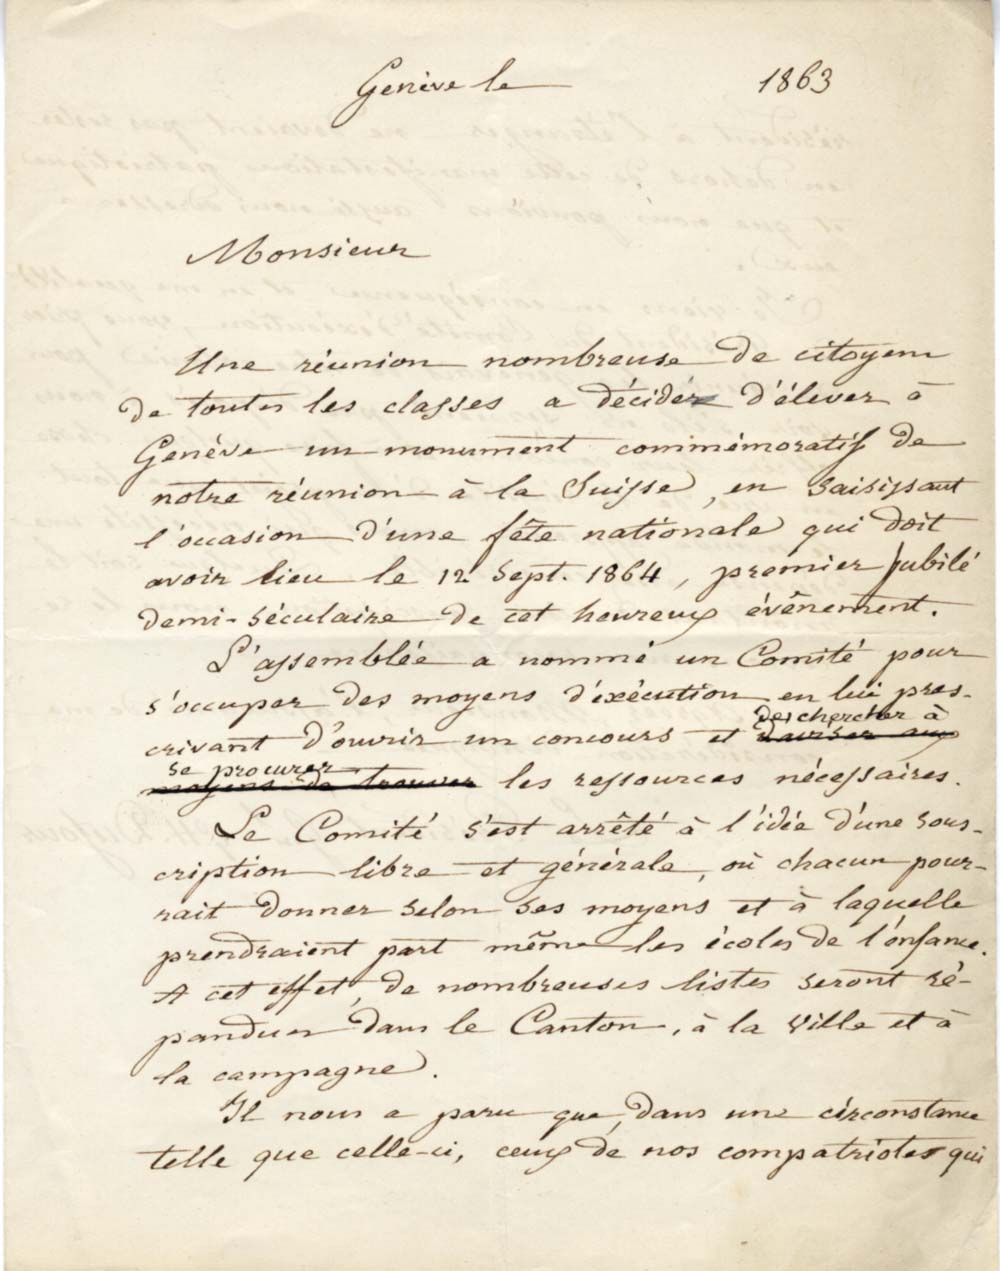 Genève le 1863
Monsieur
Une réunion nombreuse de citoyens
de toutes les classes a décidé d'élever à
Genève un monument commémoratif de
notre réunion à la Suisse, en saisissant
l'occasion d'une fête nationale qui doit
avoir lieu le 12 Sept. 1864, premier jubilé
demi-séculaire de cet heureux évênement.
L'assemblée a nommé un Comité pour
s'occuper des moyens d'éxécution en lui pres-
de chercher à
crivant d'ouvrir un concours et d'aviser aux
se procurer
moyens de trouver les ressources nécessaires.
Le Comité s'est arrêté à l'idée d'une sous-
cription libre et générale, où chacun pour-
rait donner selon ses moyens et à laquelle
prendraient part même les écoles de l'enfance.
A cet effet, de nombreuses listes seront ré-
pandues dans le Canton, à la ville et à
la campagne.
Il nous a paru que, dans une circonstance
telle que celle-ci, ceux de nos compatriotes qui